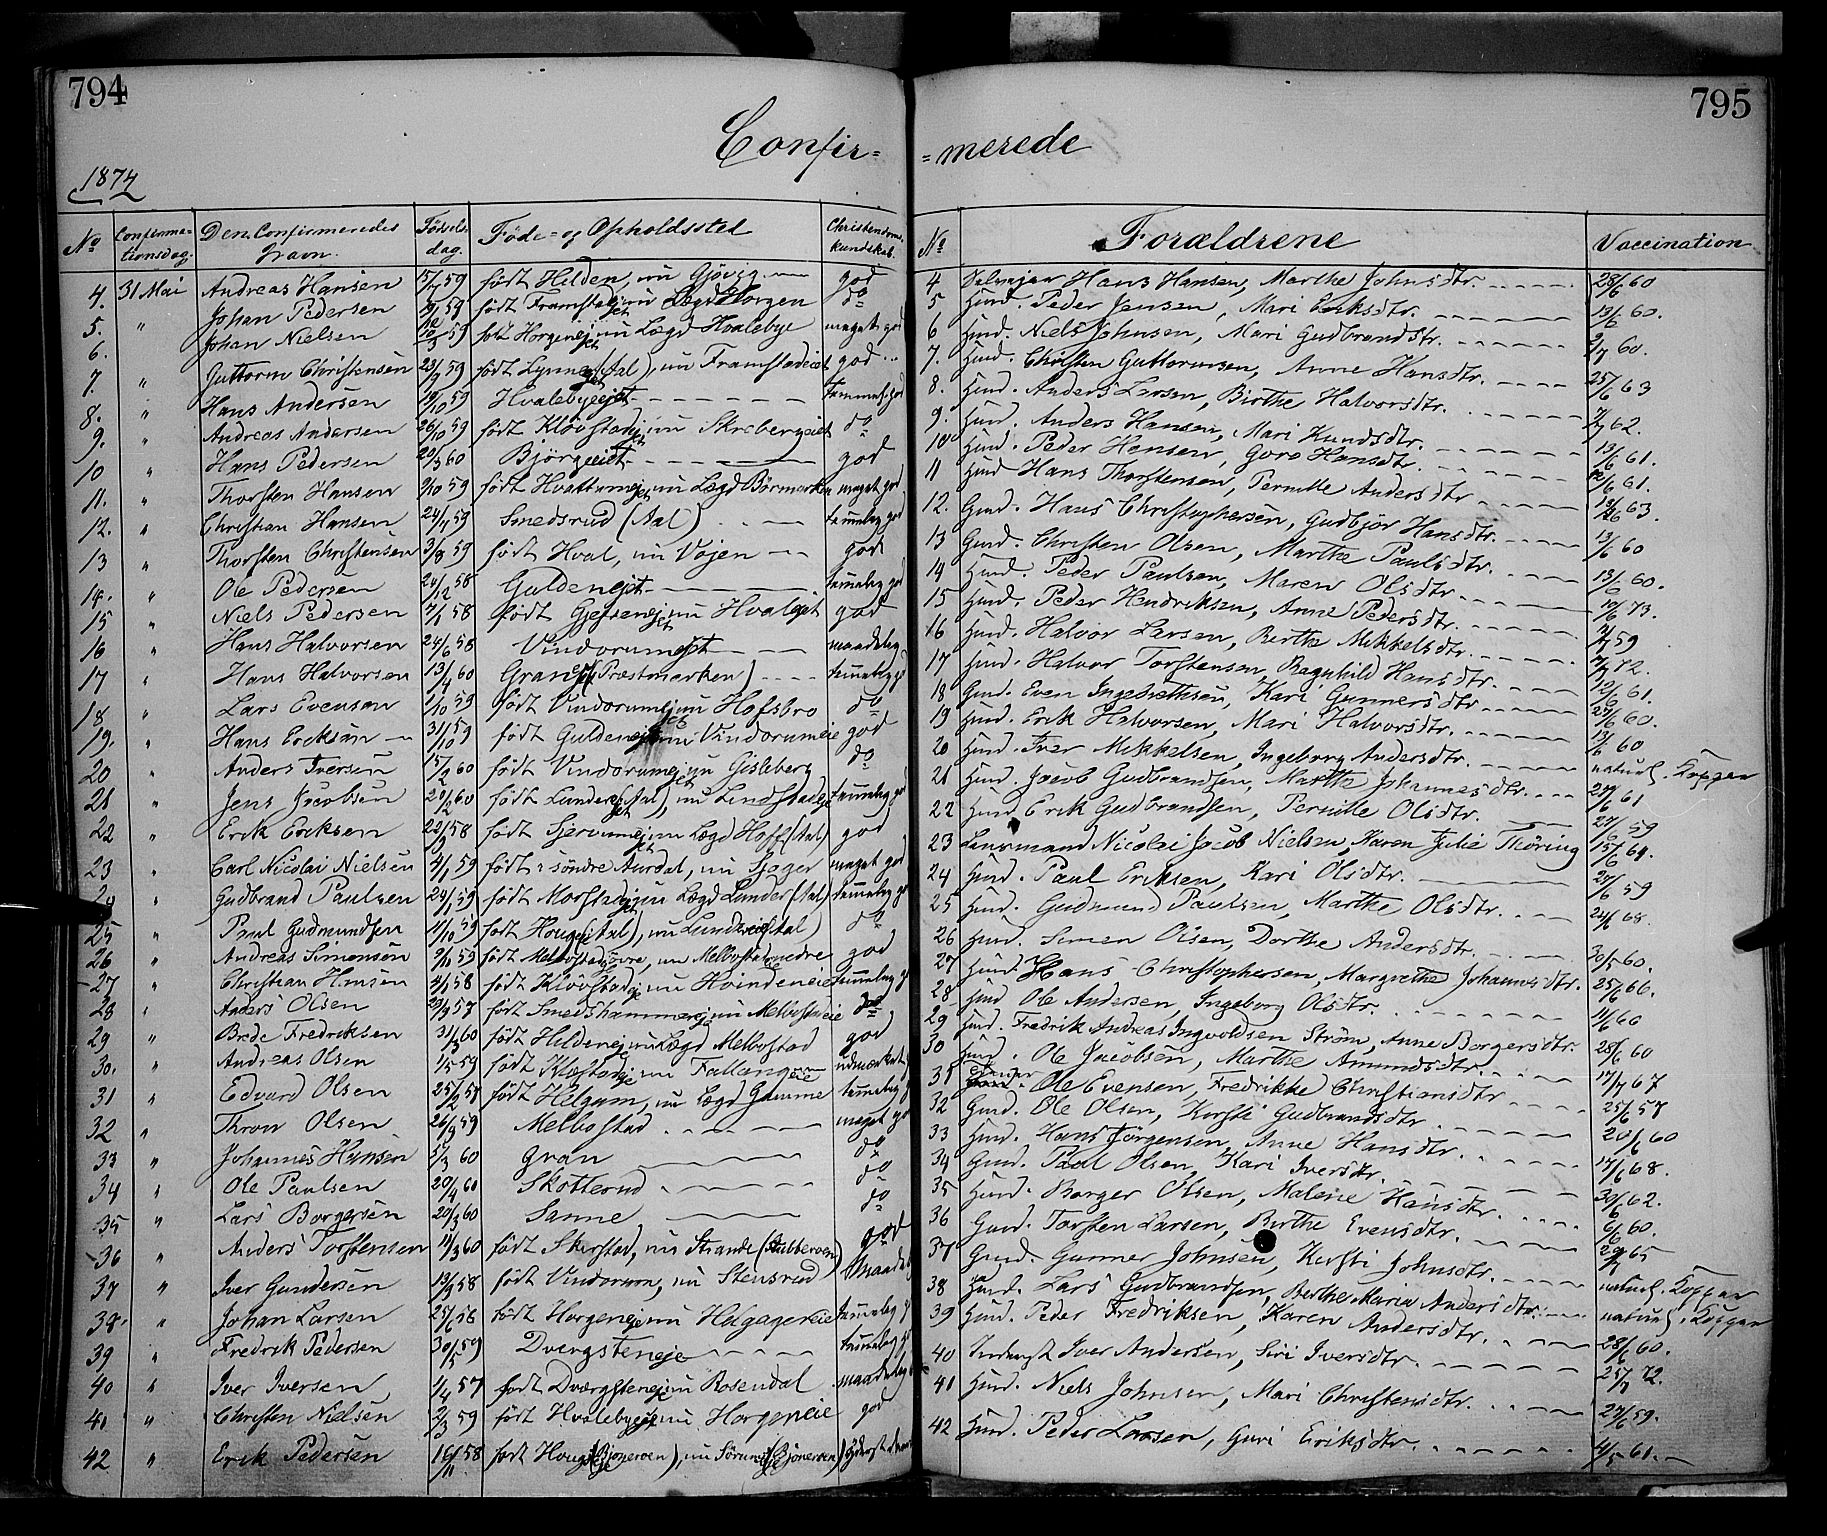 794
Confir=
1874
No Confirmationsdag. Den Confirmeredes Navn. Fødselsdag. Føde- og Opholdssted Christendomskundskab.
4. 31 Mai Andreas Hansen født Helden, nu Gjøvig god
5. " Johan Pedersen født Framstadejet nu Lægd Horgen do
6. " Johan Nielsen født Horgenejet nu Lægd Hvalebye meget god
7. " Guttorm Christensen 23/9 59 født Lynne (Aal), nu Framstadeiet god
8. " Hans Andersen 19/10 59 Hvalebyeejet
9. " Andreas Andersen 26/10 59 født Kløvstadejet nu Skrebergeiet do
10 " Hans Pedersen 20/3 60 Bjørgeeiet god
11. " Thorsten Hansen 9/10 59 født Hvattumejet nu Lægd Børmarken meget god
12. " Christian Hansen 24/4 59 Smedsrud (Aal) temmelig god
13 " Thorsten Christensen 3/8 59 født Hval, nu Vøjen god
14. " Ole Pedersen 24/12 58 Guldenejet temmelig god
15 " Niels Pedersen 7/1 58 født Gjefsenejet nu Hvalejet god
16 " Hans Halvorsen 24/6 58 Vindorumejet maadelig
17 " Hans Halvorsen 13/4 60 Granejet (Præstmarken) temmelig g
18 " Lars Evensen 1/10 59 født Vindorumejet nu Hofsbro do
19. " Hans Eriksen 31/10 59 født Guldenejet nu Vindorumeie god
20 " Anders Iversen 15/2 60 født Vindorumejet nu Gisleberg do
21 " Jens Jacobsen 20/2 60 født Lunderejet (Aal), nu Lindstadeje temmelig god
22 " Erik Eriksen født Sjervumejet nu Lægd Hoff (Aal) god
23 " Carl Nicolai Nielsen 4/1 59 født i søndre Aurdal, nu Sjøger meget god
24 " Gudbrand Paulsen 24/1 59 født Morstadejet nu Lægd Lunder (Aal) temmelig g
25 " Paul Gudmundsen 11/10 59 født Hougsejet (Aal), nu Lundereiet (Aal) do
26 " Andreas Simensen 9/11 59 født Melbostad øvre, nu Melbostad nedre god
27 " Christian Hansen født Kløvstadeje nu Hvindeneie temmelig g
28 " Anders Olsen 29/9 57 født Smedshammereje nu Melbostadeie do
29 " Brede Fredriksen født Heldenejet nu Lægd Melbostad god
30. " Andreas Olsen 1/5 59 født Kløstadeje nu Fallangeie udmærket
31 " Edvard Olsen født Helgum, nu Lægd Gamme temmelig g
32 " Thron Olsen 26/9 59 Melbostad meget g
33 " Johannes Hansen 5/3 60 Gran do
34 " Ole Paulsen 20/4 60 Skotterud do
35 " Lars Borgersen 20/3 60 Sanne do
36 " Anders Torstensen 11/3 60 født Skirstad, nu Strande god
37 " Iver Gundersen 19/3 58 født Vindorum, nu Stensrud Maadelig
38. " Johan Larsen født Horgeneje nu Helgageneie temmelig g
39 " Fredrik Pedersen 30/5 59 Dvergsteneje temmelig g
40 " Iver Iversen 1/4 57 født Dværgsteneje nu Rosendal maadelig
41 " Christen Nielsen 2/3 59 født Hvalebyeje nu Horgeneie god
42 " Erik Pedersen 16/11 58 født Hougseje (Bjoneroen), nu Sørumeje (Bjoneroen)
795
=merede
No Forældrene Vaccination
4 Hans Hansen, Marthe Johnsdtr. 28/6 60
5 Huud. Peder Jensen, Mari Eriksdtr. 13/6 60.
6 Huud. Niels Johnsen, Mari Gudbrandsdtr. 60.
7. Huud. Christen Guttormsen, Anne Hansdtr. 25/6 63
8. Huud. Anders Larsen, Birthe Halvorsdtr. 62.
9. Huud. Anders Hansen, Mari Knudsdtr. 13/6 61.
10 Huud. Peder Hansen, Goro Hansdtr. 61.
11 Huud Hans Thorstensen, Pernille Andersdtr 63.
12. Gmd. Hans Christophersen, Gudbjør Hansdtr. 13/6 60
13 Gmd. Christen Olsen, Marthe Paulsdtr. 13/6 60.
14 Huud. Peder Paulsen, Maren Olsdtr. 10/6 73.
15 Huud. Peder Hendriksen, Anne Pedersdtr. 59
16 Huud. Halvor Larsen, Berthe Mikkelsdtr. 72.
17 Huud. Halvor Torstensen, Ragnhild Hansdtr. 12/6 61.
18 Gmd. Even Ingebrethsen, Kari Gunnersdtr 27/6 60.
19 Huud. Erik Halvorsen, Mari Halvorsdtr. 13/6 60
20 Huud. Iver Mikkelsen, Ingeborg Andersdtr. naturl. Kopper
21 Huud. Jacob Gudbrandsen, Marthe Johannesdtr. 27/6 61
22 Huud Erik Gudbrandsen, Pernille Olsdtr. 27/6 59
23 Lensmand Nicolai Jacob Nielsen, Karen Julie Thøring
24 Huud. Paul Eriksen, Kari Olsdtr. 27/6 59
25 Huud. Gudmund Paulsen, Marthe Olsdtr. 24/6 68.
26 Huud. Simen Olsen, Dorthe Andersdtr. 30/5 60.
27 Huud. Hans Christophersen, Margrethe Johannesdtr. 25/6 66.
28 Huud Ole Andersen, Ingeborg Olsdtr. 11/6 60
29 Huud. Fredrik Andreas Ingvoldsen Strøm, Anne Borgersdtr. 28/6 60
30 Huud. Ole Jacobsen, Marthe Amundsdtr. 17/7 67
31 Ole Evensen, Fredrikke Christiansdtr 25/6 57
32 Gmd. Ole Olsen, Kirsti Gudbrandsdtr 20/6 60
33 Huud. Hans Jørgensen, Anne Hansdtr. 17/6 68.
34 Gmd. Paul Olsen, Kari Iversdtr. 30/6 62.
35 Huud. Borger Olsen, Malene Hansdtr. 6/6 60.
36 Gmd. Torsten Larsen, Birthe Evensdtr. 65
37 Gmd. Gunner Johnsen, Kirsti Johnsdtr. naturl. Kopper
38 Huud. Lars Gudbrandsen, Berthe Maria Andersdtr. naturl. Kopper
39 Huud. Peder Fredriksen, Karen Andersdtr. 28/6 60.
40 Iver Andersen, Siri Iversdtr. 72.
41 Huud. Niels Johnsen, Mari Christensdtr. 27/6 59.
42 Huud. Peder Larsen, Guri Eriksdtr. 4/5 61.